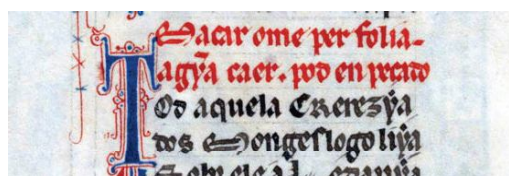 Macar ome per folia
agỹa caer. pod en pecado
Tod aquela Crerezỹa
dos Monges logo liỹa